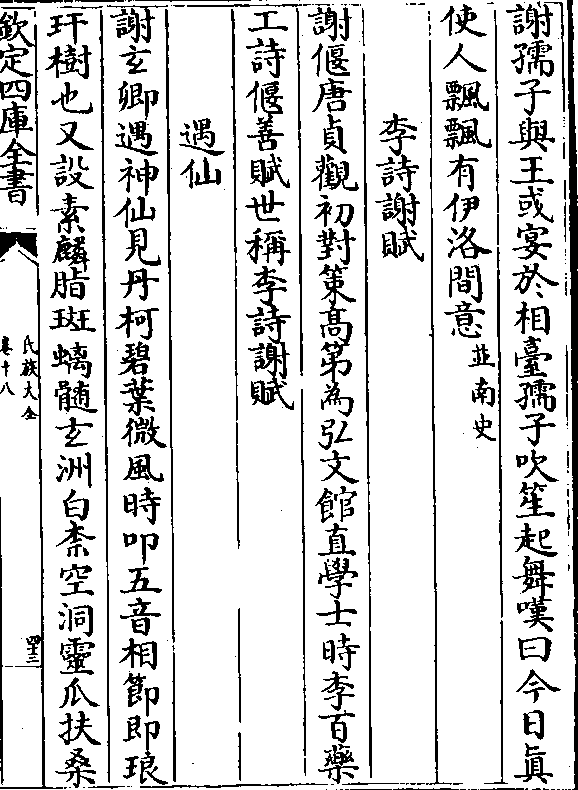 謝孺子與王彧宴於相臺孺子吹笙起舞嘆曰今日眞
使人飄飄有伊洛間意並南史
李詩謝賦
謝偃唐貞觀初對策高第為弘文館直學士時李百藥
工詩偃善賦世稱李詩謝賦
遇仙
謝玄卿遇神仙見丹柯碧葉微風時叩五音相節即琅
玕樹也又設素麟脂斑螭髓玄洲白柰空洞靈瓜扶桑
欽定四庫全書
氏族大全
卷十八
四十三